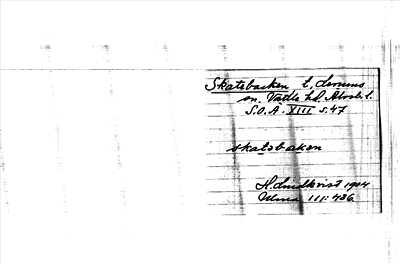 Skatsbacken l, Lerums
sn. Vättle hd. Älvsb. l.
S.O.Ä. XIII s. 47
skatsbaken
H. Lindkvist 1904
Ulma III: 486.